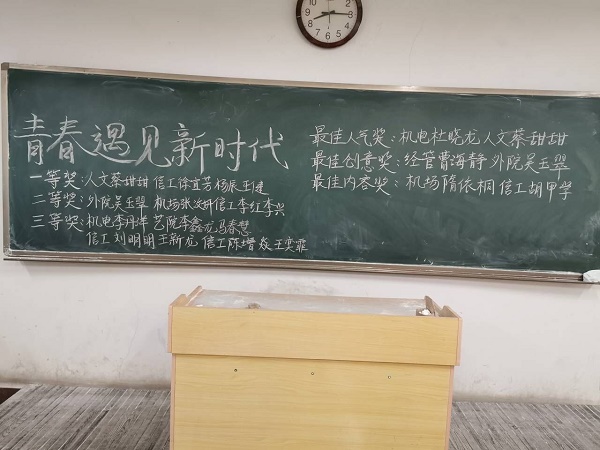 青春遇见新时代
一等奖:人文蔡甜甜 信工徐宜芳 杨振 王建
二等奖:外院吴玉翠 机场张汝妍 信工李红 李兴
三等奖:机电李丹洋 艺院李鑫龙 冯春慧
信工刘明明 王新龙 信工陈增焱 王奕霏
最佳人气奖:机电杜晓龙 人文蔡甜甜
最佳创意奖:经管曹海静 外院吴玉翠
最佳内容奖:机场隋依桐 信工胡甲学